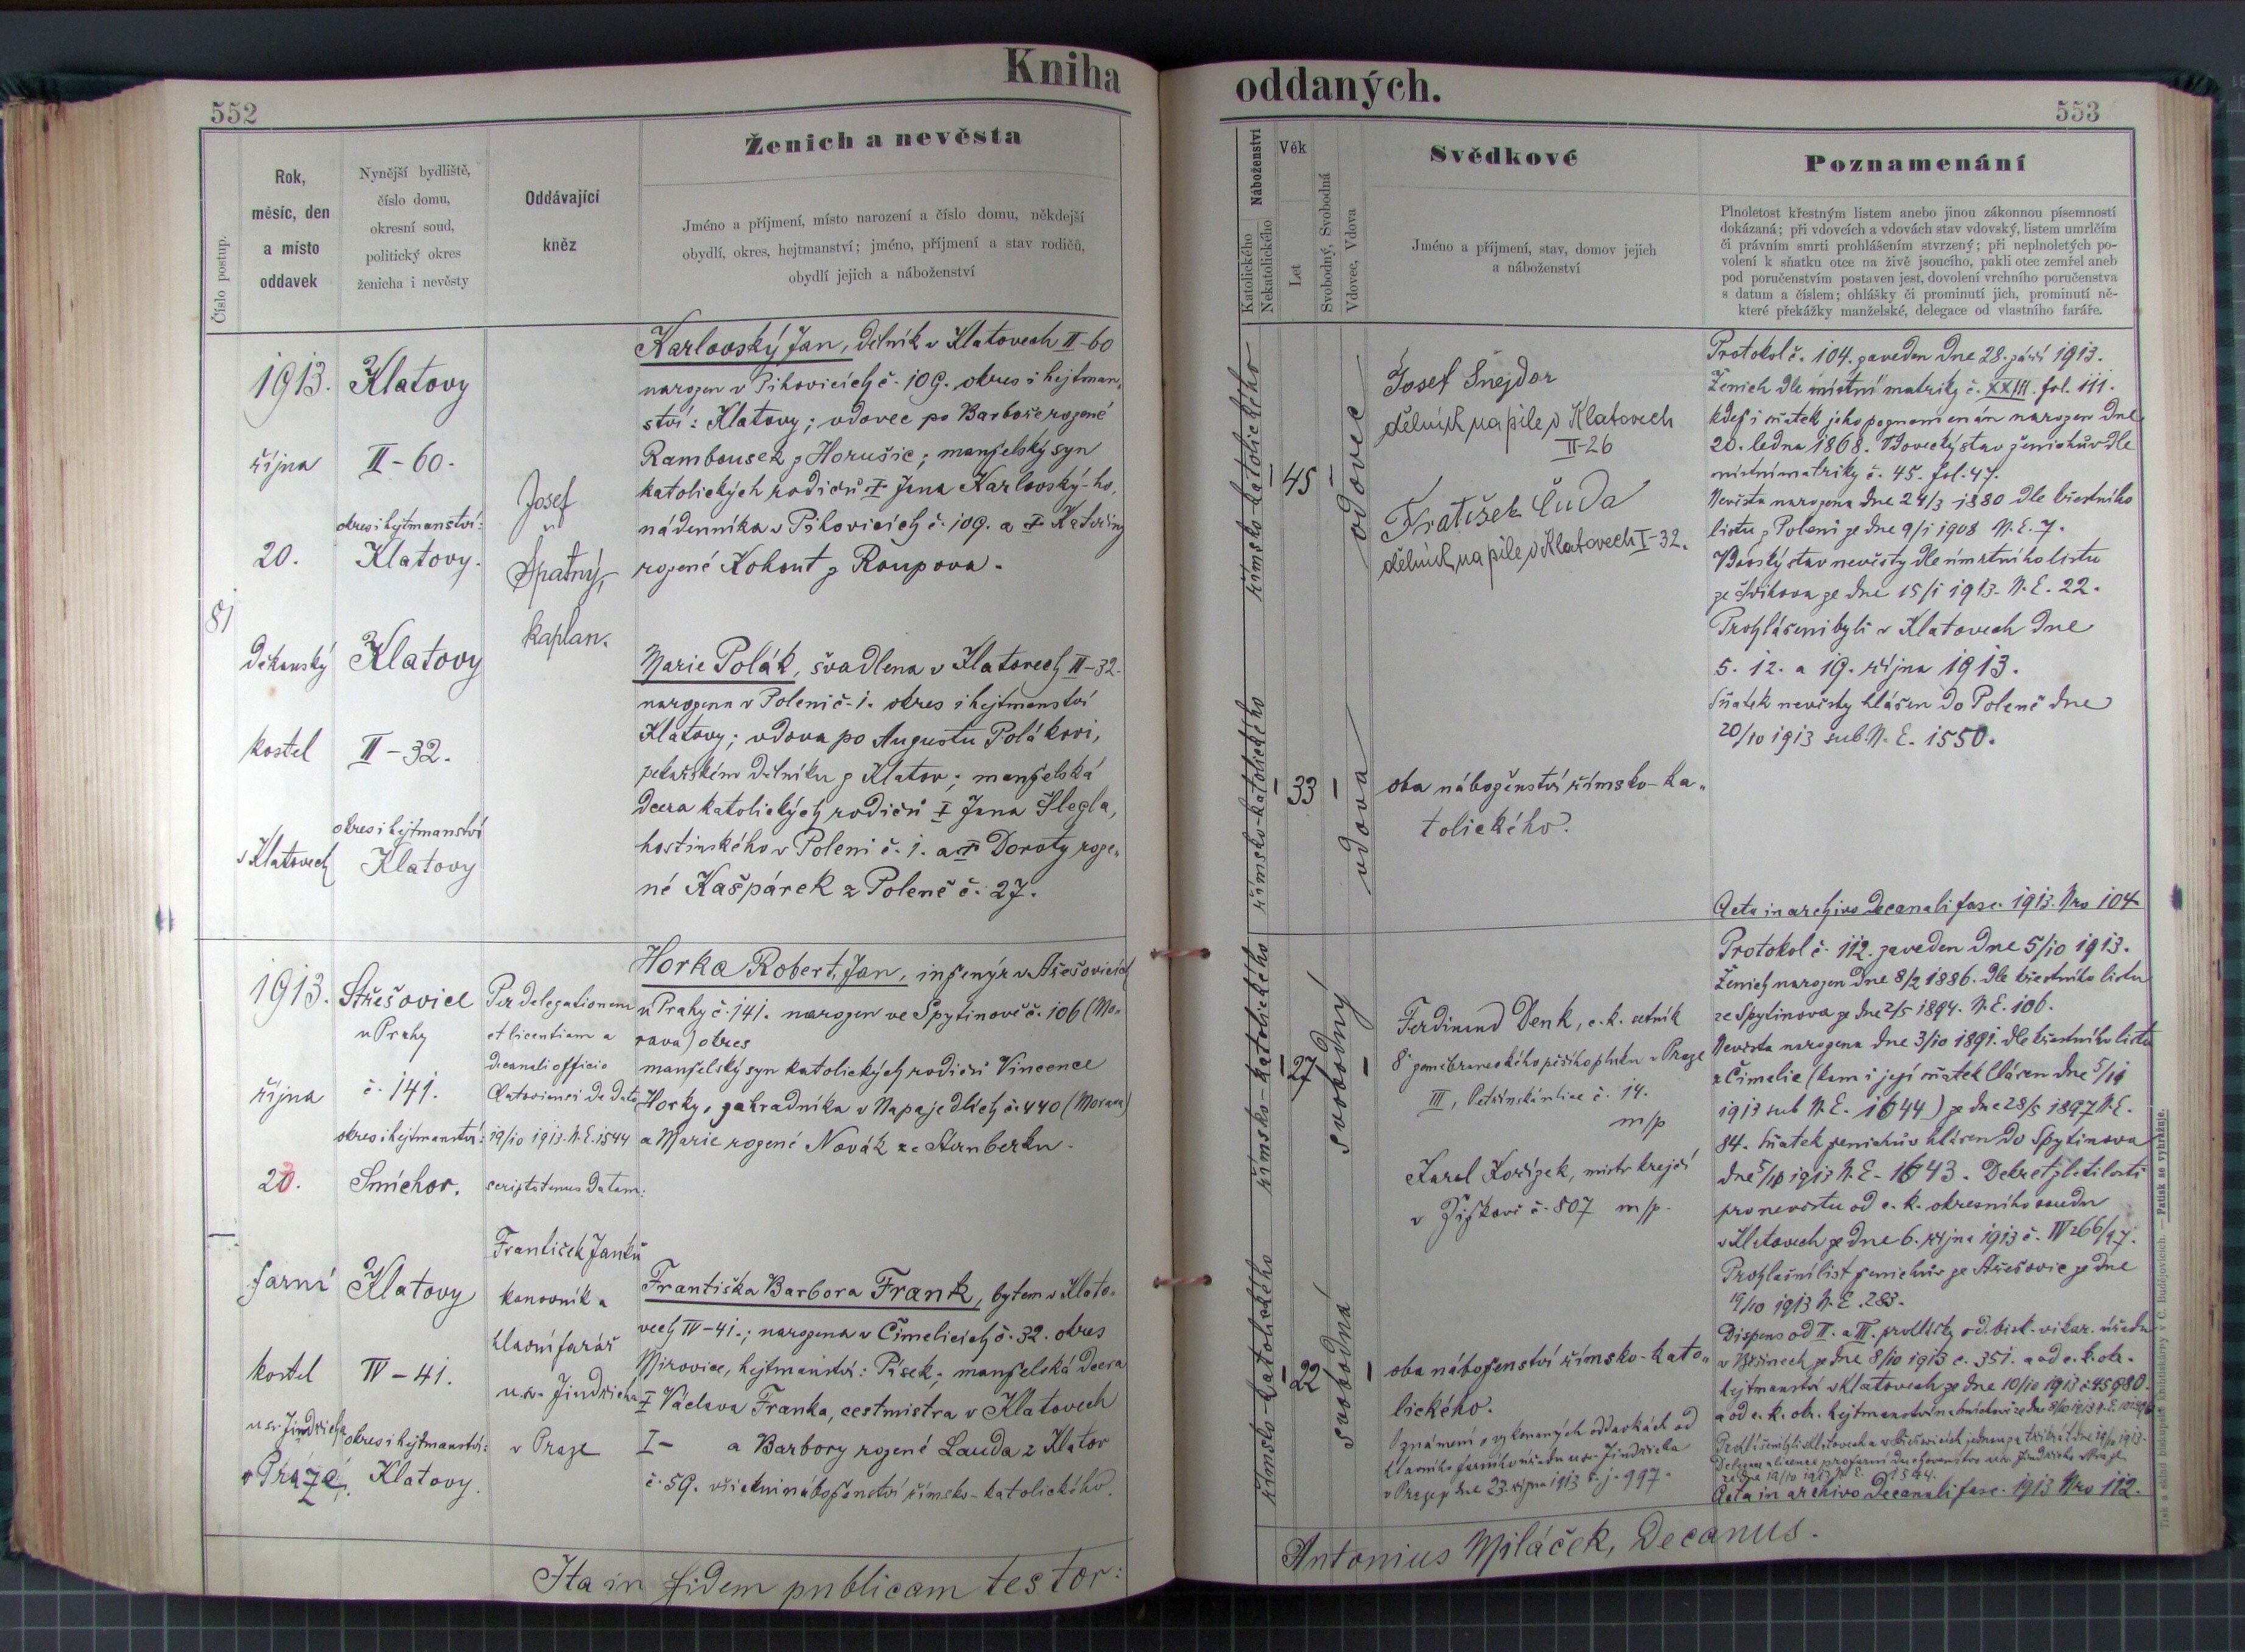 Kniha
oddaných.
552
553
Číslo postup.
Rok,
měsíc, den
a místo
oddavek
Nynější bydliště,
číslo domu,
okresní soud,
politický okres
ženicha i nevěsty
Oddávající
kněz
Ženich a nevěsta
Jméno a příjmení, místo narození a číslo domu, někdejší
obydlí, okres, hejtmanství; jméno, příjmení a stav rodičů,
obydlí jejich a náboženství
Náboženství
Katolického
Nekatolického
Věk
Let
Svobodný, Svobodná
Vdovec, Vdova
Svědkové
Jméno a příjmení, stav, domov jejich
a náboženství
Poznamenání
Plnoletost křestným listem anebo jinou zákonnou písemností
dokázaná; při vdovcích a vdovách stav vdovský, listem umrlčím
či právním smrti prohlášením stvrzený; při neplnoletých po-
volení k sňatku otce na živě jsoucího, pakli otec zemřel aneb
pod poručenstvím postaven jest, dovolení vrchního poručenstva
s datum a číslem; ohlášky či prominutí jich, prominutí ně-
které překážky manželské, delegace od vlastního faráře.
81
1913.
října
20.
děkanský
kostel
v Klatovech
Klatovy
II-60.
okres i hejtmanství:
Klatovy.
Klatovy
II-32.
okres i hejtmanství
Klatovy
Josef
Špatný,
kaplan.
Karlovský Jan, dělník v Klatovech II-60
narozen v Pihovicích č. 109. okres i hejtman„
ství: Klatovy; vdovec po Barboře rozené
Rambousek z Horušic; manželský syn
katolických rodičů † Jana Karlovský-ho,
nádenníka v Pihovicích č. 109. a † Kateřiny
rozené Kohout z Roupova.
Marie Polák, švadlena v Klatovech II-32.
narozena v Poleni č. 1. okres i hejtmanství
Klatovy; vdova po Augustu Polákovi,
pekařském dělníku z Klatov; manželská
dcera katolických rodičů † Jana Šlegla,
hostinského v Poleni č. 1. a † Doroty roze„
né Kašpárek z Poleně č. 27.
římsko-katolického
římsko-katolického
45
33
vdovec
vdova
Josef Šnejdar
dělník na pile v Klatovech
II-26
Fratišek Čuda
dělník na pile v Klatovech I-32.
oba náboženství římsko-ka„
tolického.
Protokol č. 104. zaveden dne 28. září 1913.
Ženich dle místní matriky č. XXIII. fol. 111.
kdež i sňatek jeho poznamenán narozen dne
20. ledna 1868. Vdovecký stav ženichův dle
místní matriky č. 45. fol. 47.
Nevěsta narozena dne 24/3 1880 dle křestního
listu z Poleni ze dne 9/1 1908 N. E. 7.
Vdovský stav nevěsty dle úmrtního listu
ze dne 15/1 1913. N. E. 22.
Prohlášeni byli v Klatovech dne
5. 12. a 19. října 1913.
Sňatek nevěsty hlášen do Poleně dne
20/10 1913 sub. N. E. 1550.
Acta in archivo decanali fasc. 1913. Nro 104
1913.
října
20.
farní
kostel
u sv. Jindřicha
v Praze.
Střešovice
u Prahy
č. 141.
okres i hejtmanství:
Smíchov.
Klatovy
IV-41.
okres i hejtmanství:
Klatovy.
Per delegationem
et licentiam a
decanali officio
Clatoviensi de dato
19/10 1913. N. E. 1544
scriptotenus datam:
František Janků
kanovník a
hlavní farář
u sv. Jindřicha
v Praze
Horka Robert, Jan, inženýr v Střešovicích
u Prahy č. 141. narozen ve Spytinově č. 106 (Mo„
rava) okres
manželský syn katolických rodičů Vincence
Horky, zahradníka v Napajedlích č. 440 (Morava)
a Marie rozené Novák ze Šternberku.
Františka Barbora Frank, bytem v Klato„
vech IV-41.; narozena v Čimelicích č. 32. okres
Mirovice, hejtmanství: Písek; manželská dcera
† Václava Franka, cestmistra v Klatovech
I- a Barbory rozené Lauda z Klatov
č. 59. všichni náboženství římsko-katolického.
římsko-katolického
římsko-katolického
27
22
svobodný
svobodná
Ferdinand Denk, c. k. setník
8 zeměbraneckého pěšího pluku v Praze
III, Petřínská ulice č. 14.
m/p
Karel Kořízek, mistr krejčí
v Žižkově č. 807 m/p.
oba náboženství římsko-kato„
lického.
Oznámení o vykonaných oddavkách od
hlavního farního úřadu u sv. Jindřicha
v Praze ze dne 23. října 1913 č. j. 997.
Protokol č. 112. zaveden dne 5/10 1913.
Ženich narozen dne 8/2 1886. dle křestního listu
ze Spytinova ze dne 2/5 1894. N. E. 106.
Nevěsta narozena dne 3/10 1891. dle křestního listu
z Čimelic (kam i její sňatek hlášen dne 5/11
1913 sub N. E. 1644) ze dne 28/5 1897 N. E.
84. Sňatek ženichův hlášen do Spytinova
dne 5/11 1913 N. E. 1643. Dekret zletilosti
pro nevěstu od c. k. okresního soudu
v Klatovech ze dne 6. října 1913 č. IV 266/97.
Prohlašní list ženichův ze Střešovic ze dne
19/10 1913 N. E. 283.
Dispens od II. a III. prohlášky od. bisk. vikar. úřadu
ze dne 8/10 1913 č. 351. a od c. k. okr.
hejtmanství v Klatovech ze dne 10/10 1913 č. 45980.
a od c. k. okr. hejtmanství na Smíchově ze dne
Acta in archivo decanali fasc. 1913 Nro 112.
Ita in fidem publicam testor:
Antonius Miláček, Decanus.
Tisk a sklad biskupské knihtiskárny v Č. Budějovicích. — Patisk se vyhražuje.